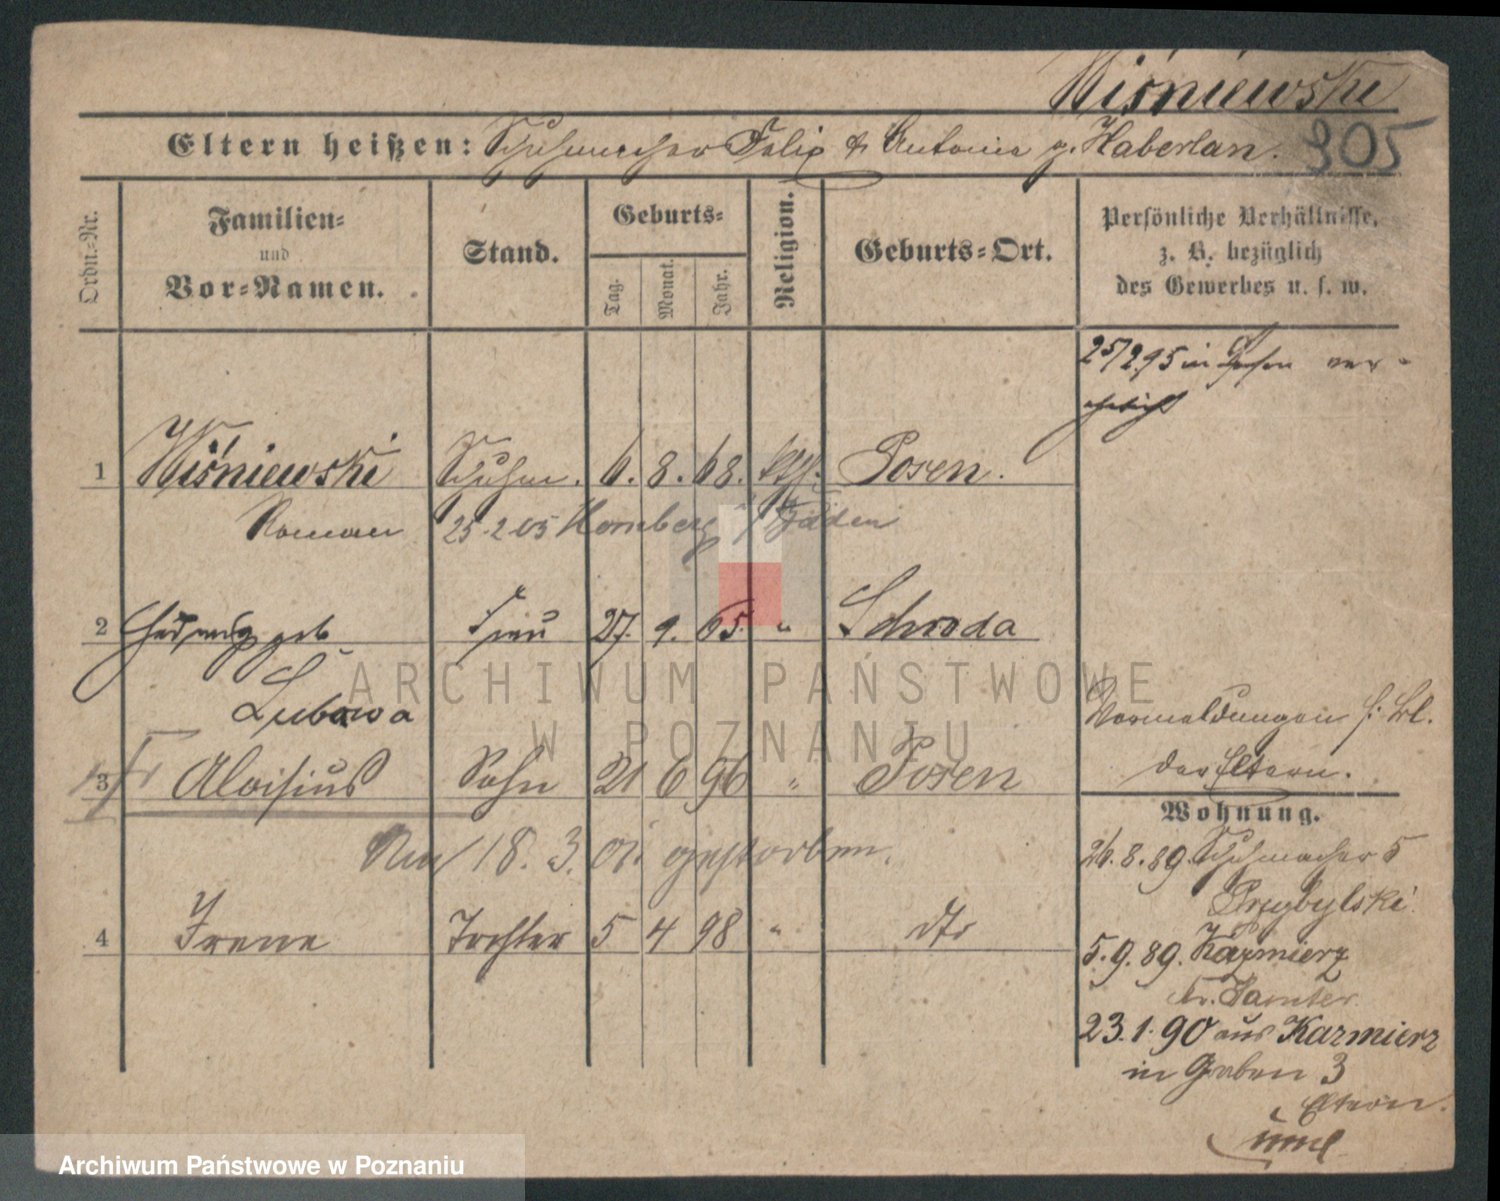 Wiśniewski
Eltern heißen: Schuhmacher Felix & Antonie g. Haberlan.
905
Ordn.-Nr.
Familien-
und
Vor-Namen.
Stand.
Geburts-
Tag.
Monat.
Jahr.
Religion.
Geburts-Ort.
Persönliche Verhältnisse,
z. B. bezüglich
des Gewerbes u. s. w.
25/2 95 in Posen ver-
ehelicht
1 Wiśniewski Schuhm. 6. 8. 68. kth. Posen.
Roman 25.2.05 Hornberg / Baden
2 Hedwig geb Frau 27. 9. 65. " Schroda
Lubawa
ARCHIWUM PAŃSTWOWE
W POZNANIU
Vormeldungen s. Bl.
der Eltern.
3 Aloisius Sohn 21 6 96 " Posen
Am 18. 3. 01. gestorben.
4 Irene Tochter 5 4 98 " dto
Wohnung.
26.8.89. Schuhmacher 5
Przybylski
5.9.89. Kazmierz
Kr. Samter
23.1.90 aus Kazmierz
in Graben 3
Eltern.
Archiwum Państwowe w Poznaniu